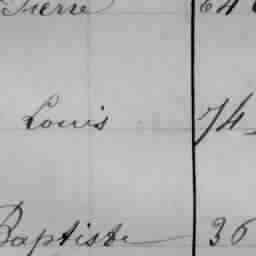 Pierre 64
Louis 74
Baptiste 36